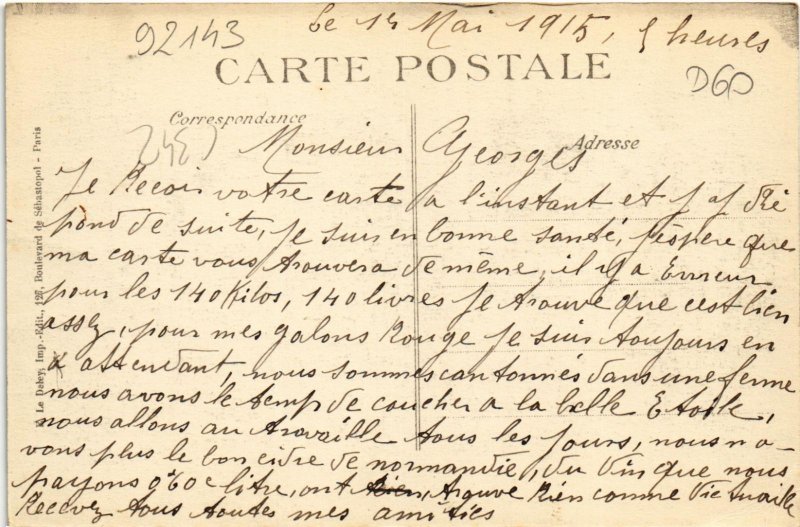 92143
Le 14 Mai 1915, 5 heures
CARTE POSTALE
D60
Correspondance
Adresse
E. Le Deley, Imp.-Edit., 127, Boulevard de Sébastopol - Paris
Monsieur Georges
Je Recois votre carte a l'instant et j'y Ré
pond de suite, je suis en bonne santé, j'espère que
ma carte vous trouvera de même, il y a Erreur
pour les 140 Kilos, 140 livres je trouve que c'est bien
assez, pour mes galons Rouge je suis toujours en
attendant, nous sommes cantonnés dans une ferme
nous avons le temp de coucher a la belle Etoile,
nous allons au travaille tous les jours, nous n a-
vons plus le bon cidre de normandie, du vin que nous
payons 0,60 c litre, ont trouve Rien comme Victuaille
Recevez tous toutes mes amitiés